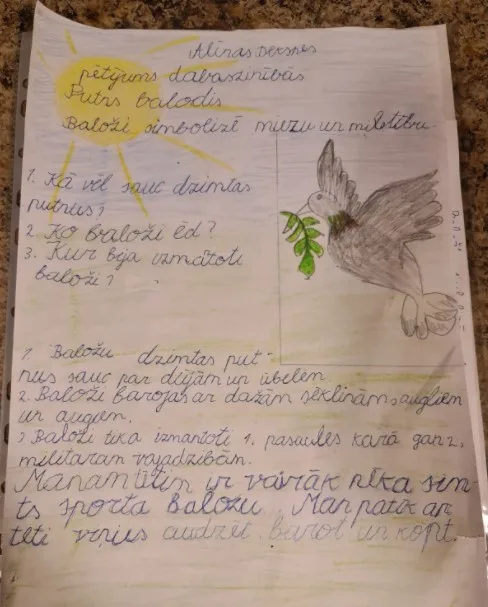 Alīnas
pētījums dabaszinībās
Putns balodis
Baloži simbolizē mieru un mīlestību.
1. Kā vēl sauc dzimtas
putnus?
2. Ko baloži ēd?
3. Kur bija izmatoti
baloži?
1. Baložu dzimtas put-
nus sauc par dūjām un ūbelēm.
2. Baloži barojas ar dažām sēklinām, augļiem
un augiem.
3 Baloži tika izmantoti 1. pasaules karā gan 2.
militāram vajadzībām.
Manam tētim ir vairāk nēka sim-
ts sporta baložu. Man patīk ar
tēti viņus audzēt, barot un kopt.